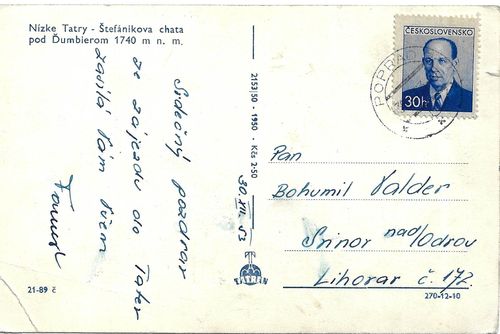 Nízke Tatry - Štefánikova chata
pod Ďumbierom 1740 m n. m.
Srdečný pozdrav
ze zájezdu do Tater
zasílá Vám všem
21-89 č
2153/50 - 1950 - Kčs 2·50
30. XII. 53
ČESKOSLOVENSKO
30h
POPRAD
Pan
Bohumil Valder
nad/Odrou
Lihovar č. 172.
270-12-10